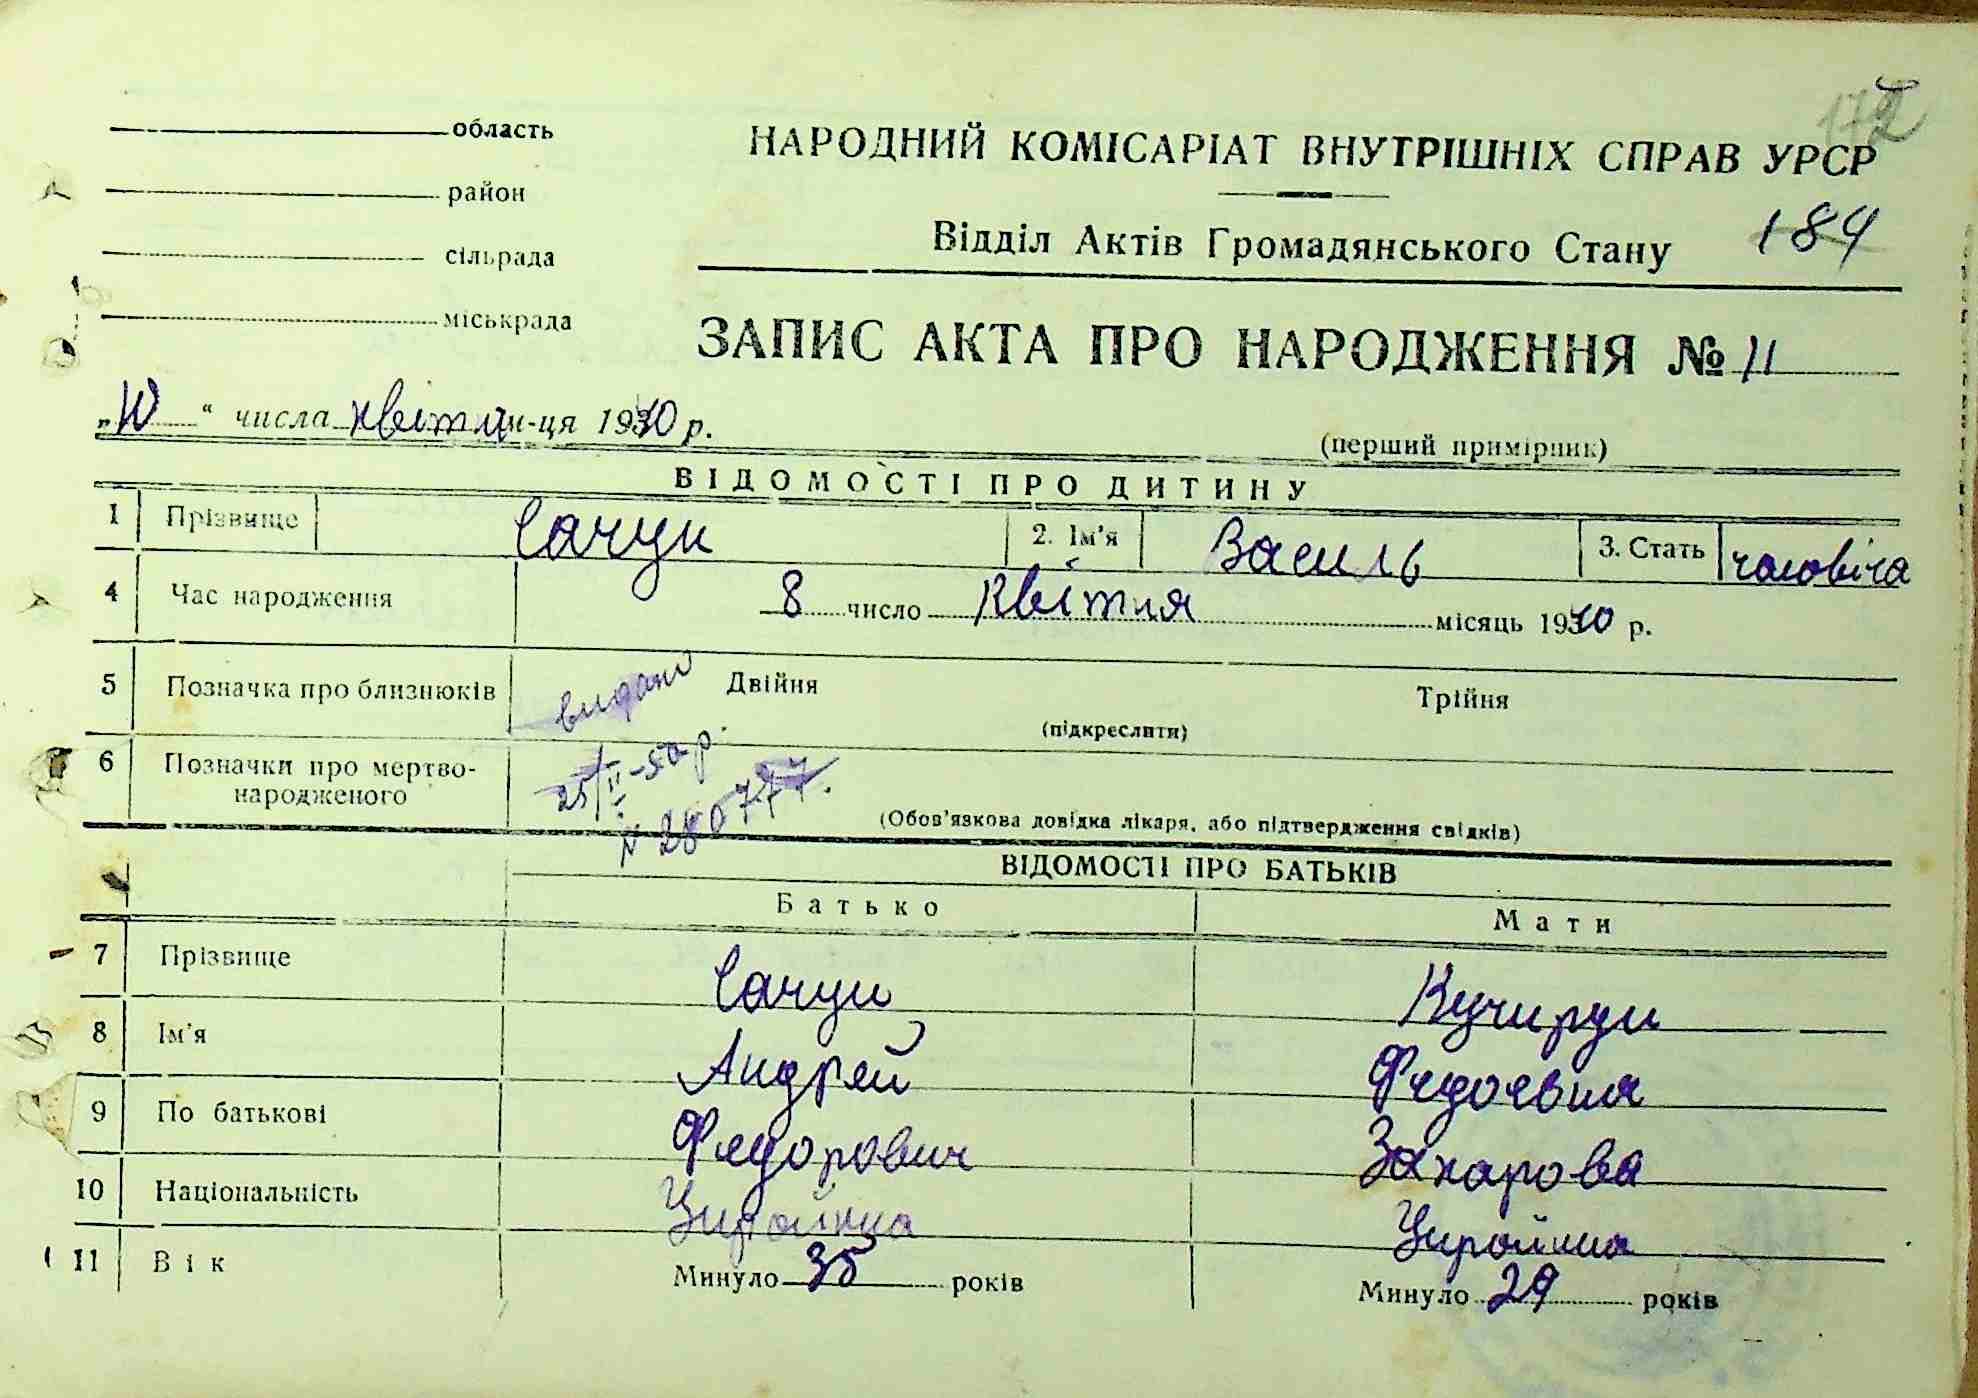 172
область
НАРОДНИЙ КОМІСАРІАТ ВНУТРІШНІХ СПРАВ УРСР
район
Відділ Актів Громадянського Стану 184
сільрада
міськрада
ЗАПИС АКТА ПРО НАРОДЖЕННЯ № 11
„10“ числа квітня м-ця 1940 р.
(перший примірник)
ВІДОМОСТІ ПРО ДИТИНУ
1 Прізвище Сачук 2. Ім'я Василь 3. Стать чоловіча
4 Час народження 8 число Квітня місяць 1940 р.
5 Позначка про близнюків Двійня Трійня
(підкреслити)
видано
25/II-50 р.
N 280777.
6 Позначки про мертво-
народженого
(Обов'язкова довідка лікаря, або підтвердження свідків)
ВІДОМОСТІ ПРО БАТЬКІВ
Батько Мати
7 Прізвище Сачук Кучирук
8 Ім'я Андрей
9 По батькові Федорович Захарова
10 Національність Украйнка Украйнка
11 Вік Минуло 35 років Минуло 29 років